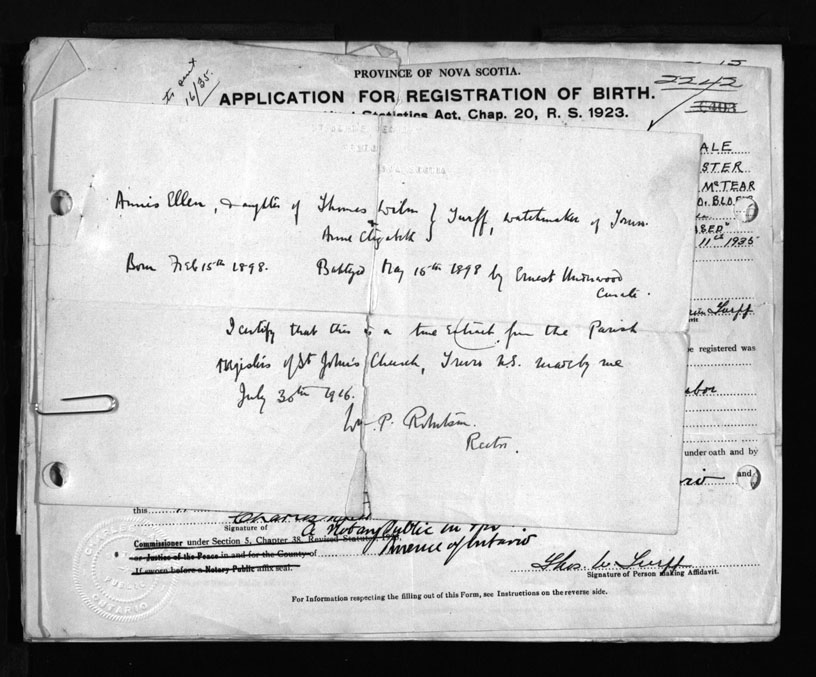 to sent
16/35.
15
PROVINCE OF NOVA SCOTIA.
2242
APPLICATION FOR REGISTRATION OF BIRTH.
Statistics Act, Chap. 20, R. S. 1923.
ALE
STER
McTEAR
ASED"
11th 1935
Annis Ellen, daughter of Thomas Wilm } Turff, watchmaker of Truro.
& Anne Elizabeth
Born Feb 15th 1898. Baptized May 15th 1898 by Ernest Underwood
Curate.
Turff
be registered was
I certify that this is a true Extract from the Parish
registers of St John's Church, Truro N.S. made by me
July 30th 1916.
Wm. P. Robertson.
Rector.
under oath and by
and
this
Charles
Signature of
A Notary Public in
Commissioner under Section 5, Chapter 38, Revised Statutes,
or Justice of the Peace in and for the County of
Province of Ontario
If sworn before a Notary Public affix seal.
Thos. W Turff
Signature of Person Making Affidavit.
ONTARIO
For Information respecting the filling out of this Form, see Instructions on the reverse side.